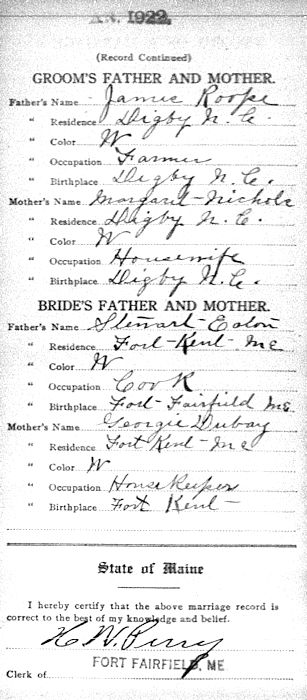 1922.
(Record Continued)
GROOM'S FATHER AND MOTHER.
Father's Name James Roope
" Residence Digby N. C.
" Color W
" Occupation Farmer
" Birthplace Digby N. C.
Mother's Name Margaret Nichols
" Residence Digby N. C.
" Color W
" Occupation Housewife
" Birthplace Digby N. C.
BRIDE'S FATHER AND MOTHER.
Father's Name Stewart Eaton
" Residence Fort Kent Me
" Color W
" Occupation Cook
" Birthplace Fort Fairfield Me
Mother's Name Georgie Dubay
" Residence Fort Kent Me
" Color W
" Occupation House Keeper
" Birthplace Fort Kent
State of Maine
I hereby certify that the above marriage record is
correct to the best of my knowledge and belief.
H. W. Perry
Clerk of FORT FAIRFIELD, ME